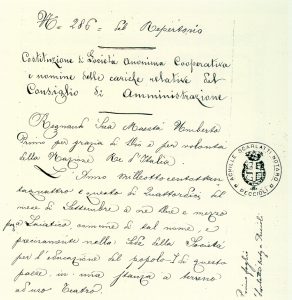 N= 286= del Repertorio
Costituzione di Società Anonima Cooperativa
e nomine delle cariche relative del
Consiglio di Amministrazione
Regnando Sua Maestà Umberto
Primo per grazia di Dio e per volontà
della Nazione Re d'Italia.
L'Anno milleottocentottan
taquattro e questo dì quattordici del
mese di Settembre a ore tre e mezzo
comune di tal nome, e
precisamente nella Sede della Società
per l'educazione del popolo di questo
paese, in una stanza a terreno
ad uso Teatro.
ACHILLE SCARLATTI NOTARO
PECCIOLI
Primo foglio